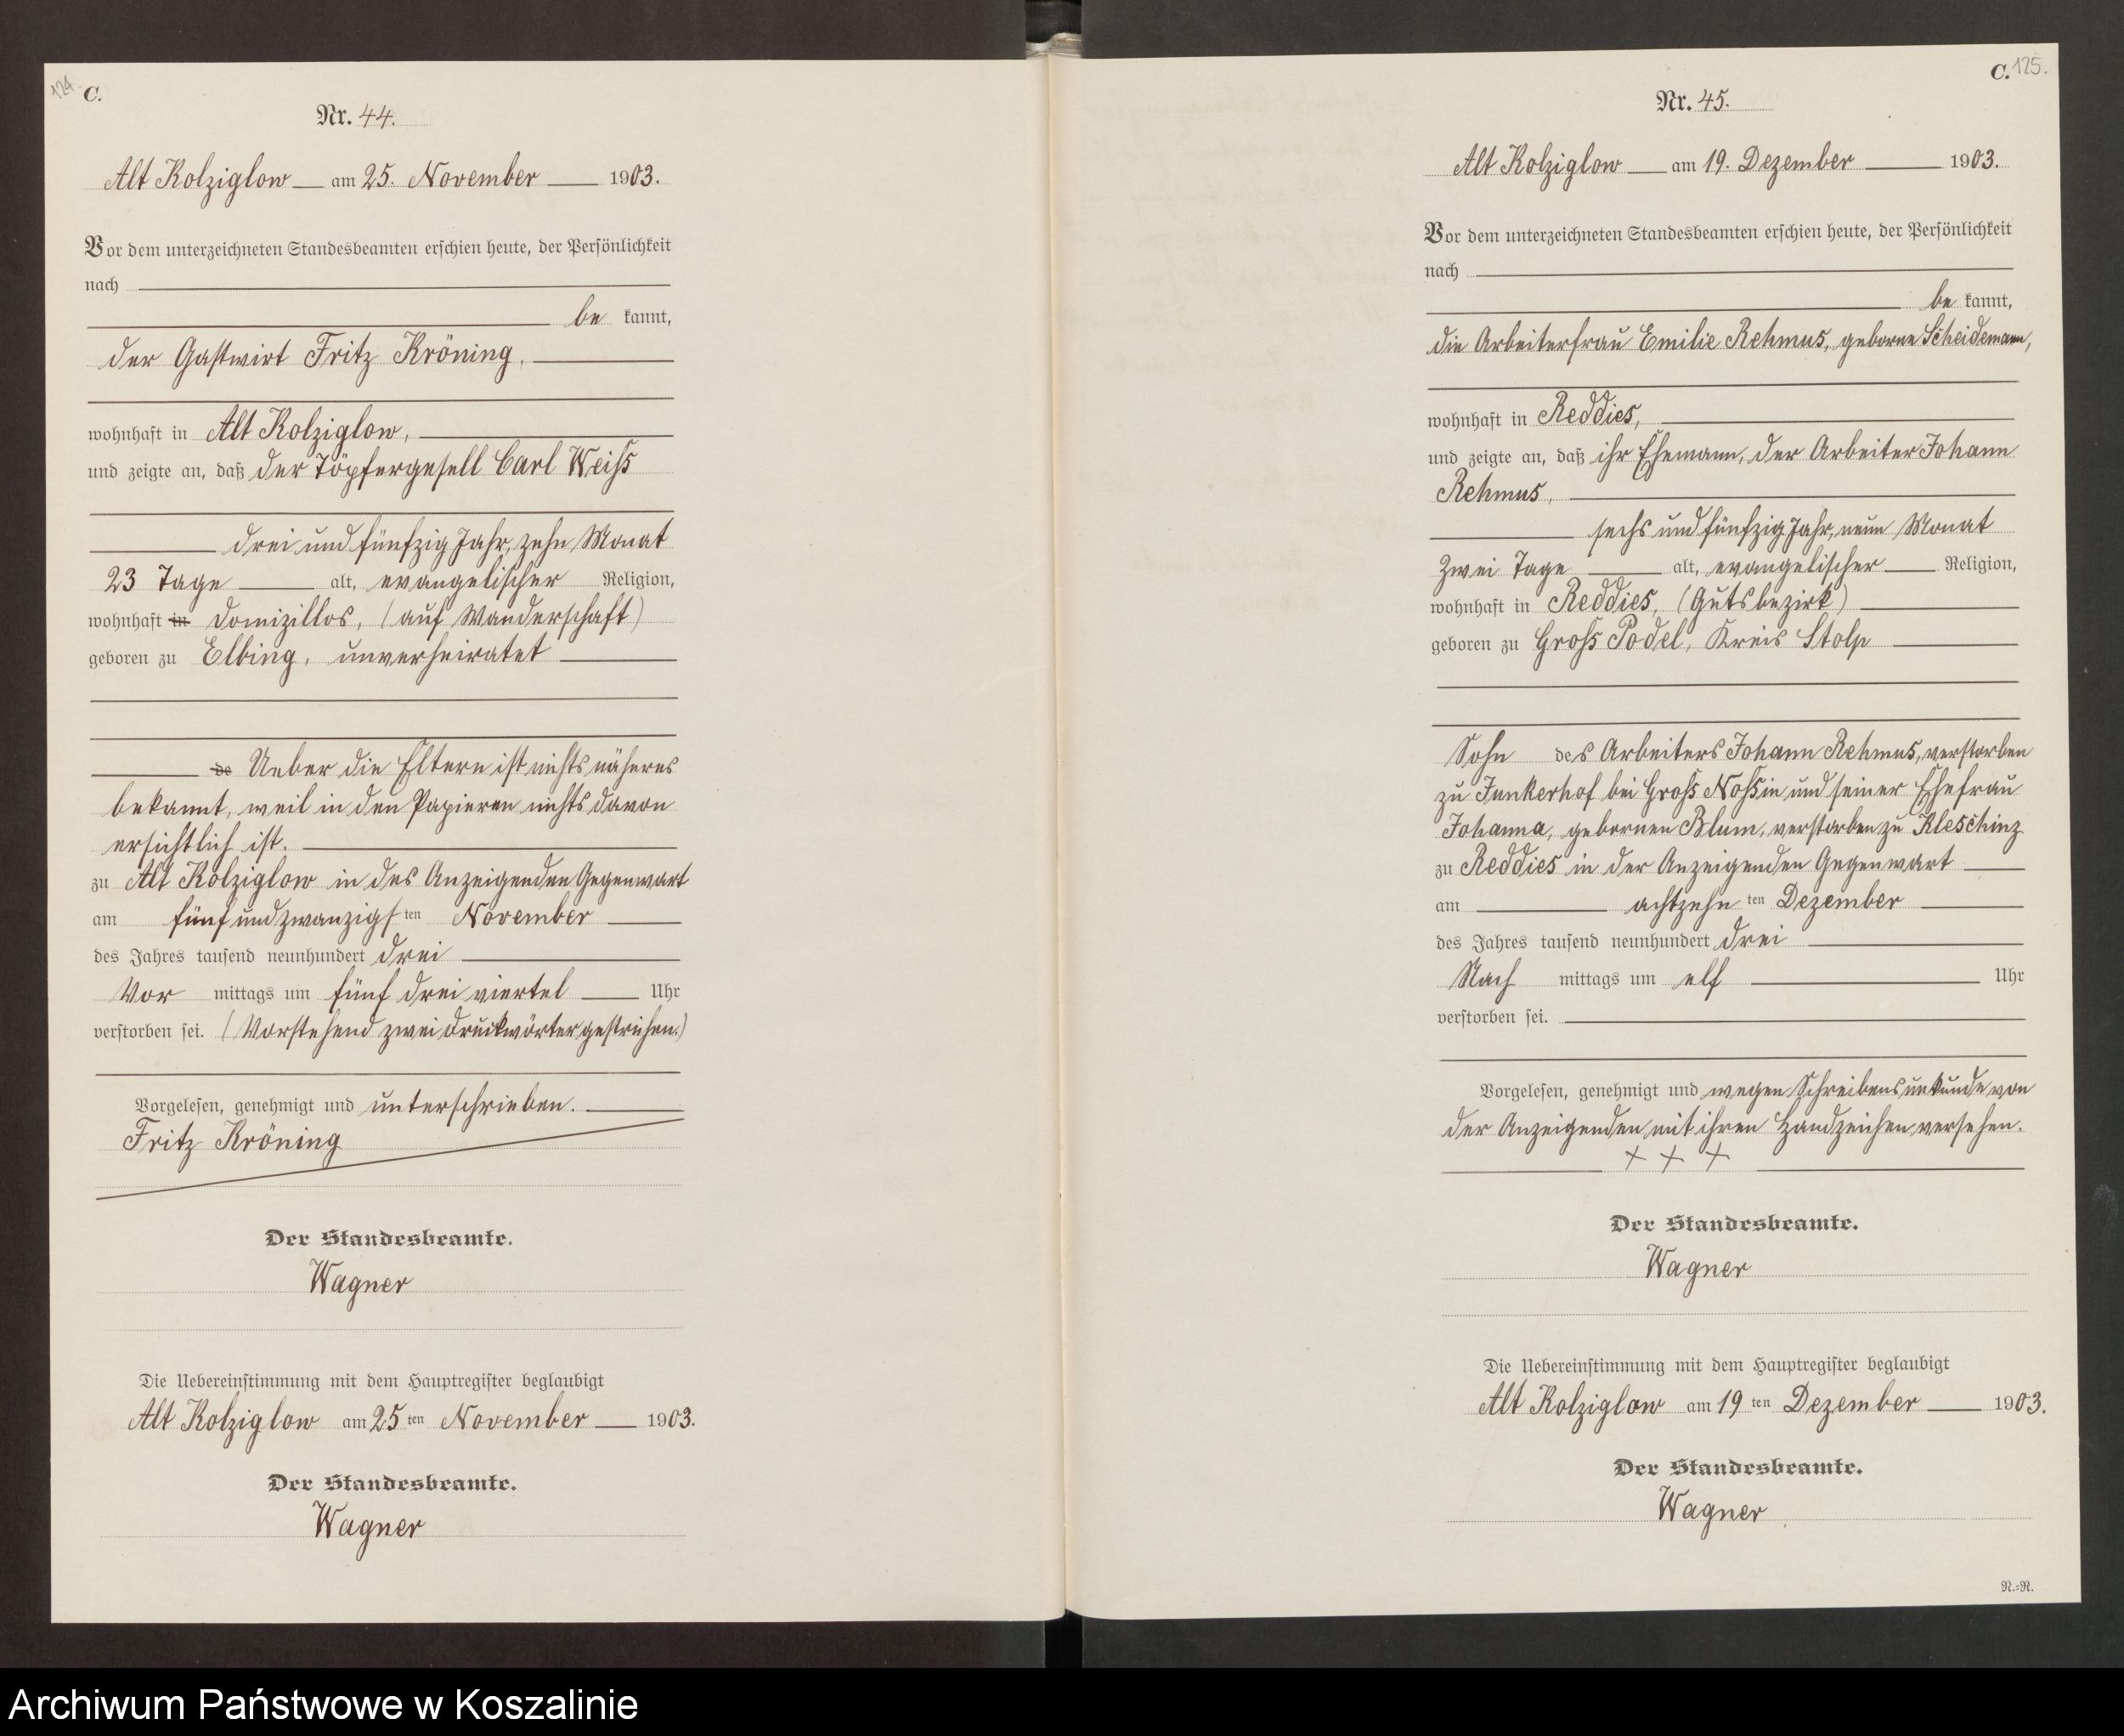 124.
C.
Nr. 44.
Alt Kolziglow am 25. November 1903.
Vor dem unterzeichneten Standesbeamten erschien heute, der Persönlichkeit
nach
be kannt,
der Gastwirt Fritz Kröning,
wohnhaft in Alt Kolziglow,
und zeigte an, daß der Töpfergesell Carl Weiß
drei und fünfzig Jahr, zehn Monat
23 Tage alt, evangelischer Religion,
wohnhaft in domizillos, (auf Wanderschaft)
geboren zu Elbing, unverheiratet
de Ueber die Eltern ist nichts näheres
bekannt, weil in den Papieren nichts davon
ersichtlich ist.
zu Alt Kolziglow in des Anzeigenden Gegenwart
am fünf und zwanzigsten November
des Jahres tausend neunhundert drei
Vor mittags um fünf drei viertel Uhr
verstorben sei. (Vorstehend zwei Druckwörter gestrichen.)
Vorgelesen, genehmigt und unterschrieben.
Fritz Kröning
Der Standesbeamte.
Wagner
Die Uebereinstimmung mit dem Hauptregister beglaubigt
Alt Kolziglow am 25 ten November 1903.
Der Standesbeamte.
Wagner
C. 125.
Nr. 45.
Alt Kolziglow am 19. Dezember 1903.
Vor dem unterzeichneten Standesbeamten erschien heute, der Persönlichkeit
nach
be kannt,
die Arbeiterfrau Emilie Rehmus, geborne Scheidemann,
wohnhaft in Reddies,
und zeigte an, daß ihr Ehemann, der Arbeiter Johann
Rehmus,
sechs und fünfzig Jahr, neun Monat
zwei Tage alt, evangelischer Religion,
wohnhaft in Reddies, (Gutsbezirk)
geboren zu Groß Podel, Kreis Stolp
Sohn des Arbeiters Johann Rehmus, verstorben
zu Junkerhof bei Groß Noßin und seiner Ehefrau
Johanna, gebornen Blum, verstorben zu Kleschinz
zu Reddies in der Anzeigenden Gegenwart
am achtzehn ten Dezember
des Jahres tausend neunhundert drei
Nach mittags um elf Uhr
verstorben sei.
Vorgelesen, genehmigt und wegen Schreibensunkunde von
der Anzeigenden mit ihren Handzeichen versehen.
+ + +
Der Standesbeamte.
Wagner
Die Uebereinstimmung mit dem Hauptregister beglaubigt
Alt Kolziglow am 19 ten Dezember 1903.
Der Standesbeamte.
Wagner
N.=N.
Archiwum Państwowe w Koszalinie